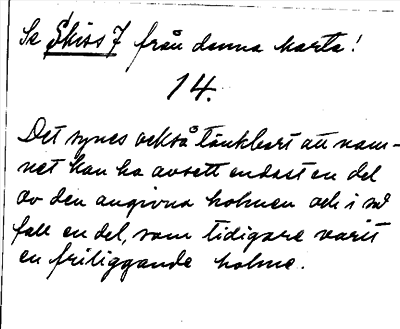 Se Skiss 7 från denna karta!
14.
Det synes också tänkbart att nam-
net kan ha avsett endast en del
av den angivna holmen och i så
fall en del, som tidigare varit
en friliggande holme.